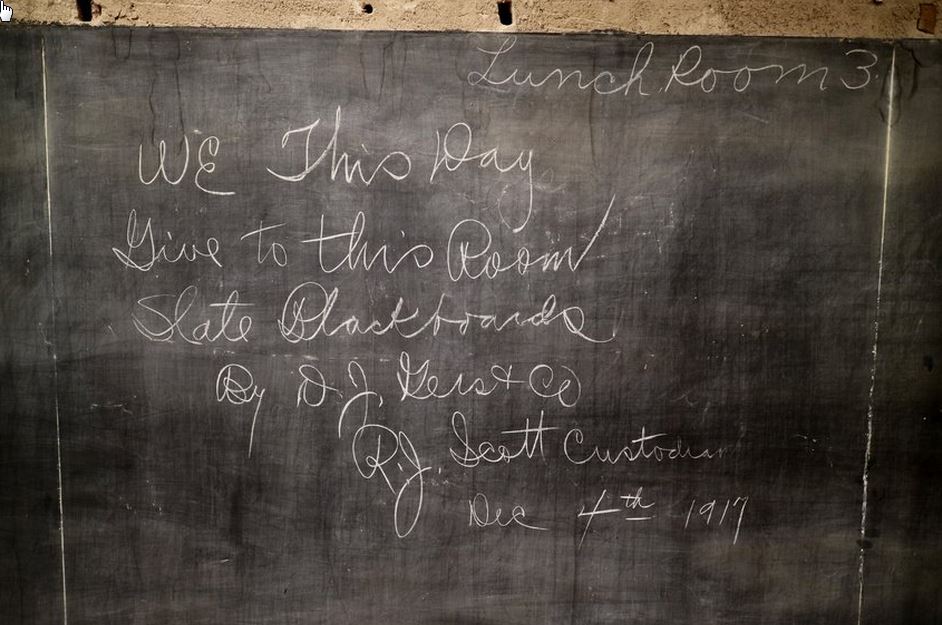 Lunch Room 3.
WE This Day
Give to this Room
Slate Blackboards
By D.J. Gers & Co
R.J. Scott Custodian
Dec 4th 1917